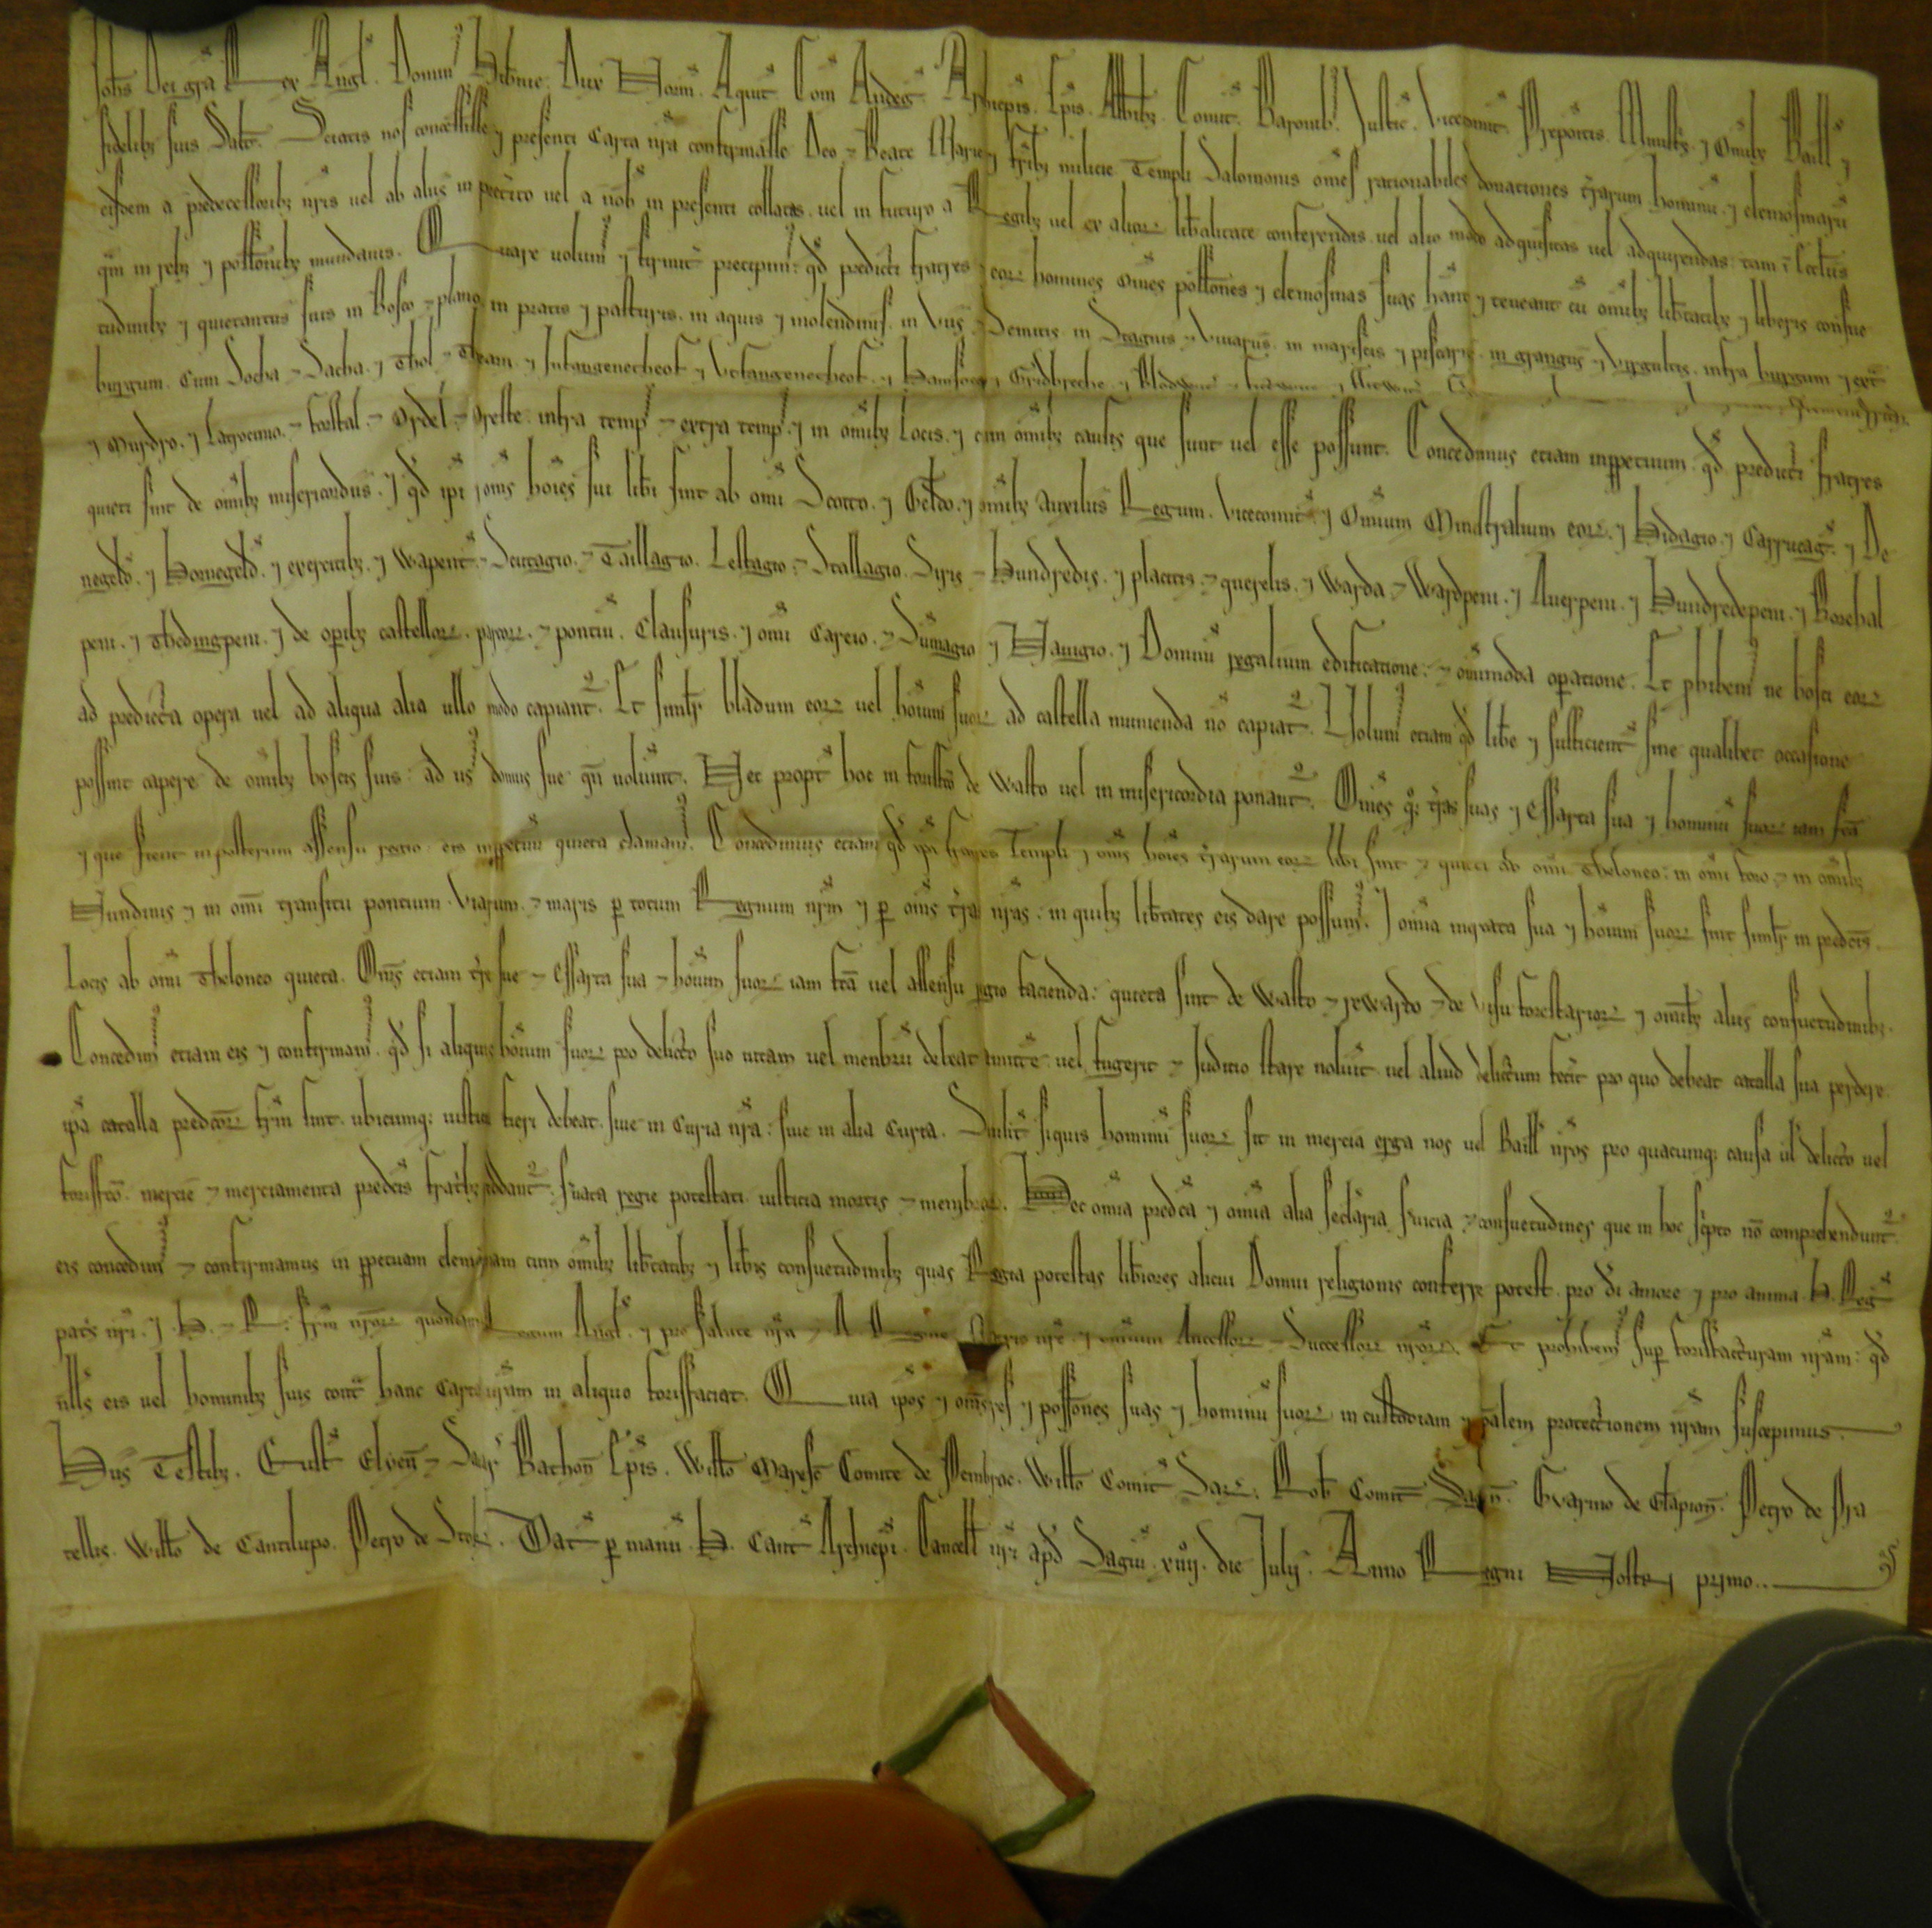 Joh̄s Dei gr̄a Rex Angl̄. Domin᷒ Hib̄nie. Dux Norm̄. Aquit̄. Com̄ Andeḡ. Archiepīs. Ep̄is. Abbatib᷒. Comit̄. Baronib᷒. Justic̄. Vicecomit̄. Prepositis. Ministris. ⁊ Om̄ib᷒ Baill̄ ⁊
fidelib᷒ suis Salt̄. Sciatis nos concessisse ⁊ presenti Carta nr̄a confirmasse Deo ⁊ Beate Marie ⁊ fr̄ib᷒ milicie Templi Salomonis om̄es rationabiles donationes t̄rarum hominū. ⁊ elemosinarū
eisdem a predecessorib᷒ nr̄is uel ab aliis in pret̄ito uel a nob̄ in presenti collatas. uel in futuro a Regib᷒ uel ex alioꝝ lib̄alitate conferendis. uel alio modo adquisitas uel adquirendas. tam ī ecc̄liis
q̄m in reb᷒ ⁊ possīonib᷒ mundanis. Quare volum᷒ ⁊ firmit̄ precipim᷒. qd̄ predicti fratres ⁊ eoꝝ homines om̄es possīones ⁊ elemosinas suas hānt ⁊ teneant cū om̄ib᷒ lib̄tatib᷒ ⁊ liberis consue
tudinib᷒ ⁊ quietantiis suis in Bosco ⁊ plano. in pratis ⁊ pasturis. in aquis ⁊ molendinis. in Viis ⁊ Semitis. in Stagnis ⁊ Vivariis. in mariscis ⁊ piscariis. in grangiis ⁊ Virgultis. infra burgum ⁊ ext̄
burgum. Cum Socha ⁊ Sacha. ⁊ Thol ⁊ Theam. ⁊ Infangenetheof ⁊ Utfangenetheof. ⁊ Hamsocne ⁊ Gridbreche. ⁊ Blodwit̄
⁊ Murdro. ⁊ Latrocinio. ⁊ forstal. ⁊ Ordel ⁊ Oreste. infra temp᷒ ⁊ extra temp᷒. ⁊ in om̄ib᷒ Locis. ⁊ cum om̄ib᷒ causis que sunt uel esse possunt. Concedimus etiam inpꝑetuum. qd̄ predicti fratres
quieti sint de om̄ib᷒ misericordiis. ⁊ qd̄ ipi ⁊ om̄is hoīes sui lib̄i sint ab om̄i Scotto. ⁊ Geldo. ⁊ om̄ib᷒ auxiliis Regum. Vicecomit̄. ⁊ Omnium Ministralium eoꝝ. ⁊ Hidagio. ⁊ Carrucaḡ. ⁊ De
negeld̄. ⁊ Hornegeld̄. ⁊ exercitib᷒. ⁊ Wapent̄. ⁊ Scutagio. ⁊ Taillagio. Lestagio. ⁊ Stallagio. Siris ⁊ Hundredis. ⁊ placitis. ⁊ querelis. ⁊ Warda. ⁊ Wardpeni. ⁊ Averpeni. ⁊ Hundredepeni. ⁊ Borethal
peni. ⁊ Thedingpeni. ⁊ de opib᷒ castelloꝝ. parcoꝝ. ⁊ pontiū. Clausuris. ⁊ om̄i Careio. ⁊ Sumagio ⁊ Navigio. ⁊ Domuū regalium edificatione. ⁊ om̄imoda opatione. Et phibem᷒ ne bosci eoꝝ
ad predicta opera uel ad aliqua alia ullo modo capiant̄᷑. Et simlit̄ bladum eoꝝ uel hoūm suoꝝ ad castella munienda nō capiat̄᷑. Volum᷒ etiam qd̄ libe ⁊ sufficient̄ sine qualibet occasione
possint capere de om̄ib᷒ boscis suis: ad us᷒ domus sue qn̄ voluint̄. Nec propt̄ hoc in forisfco de Wasto uel in misericordia ponant̄᷑. Om̄es q̨ t̄ras suas ⁊ Essarta sua ⁊ hominū suoꝝ iam fc̄a
⁊ que fient inposterum assensu regio. eis inppetuū quieta clamam᷒. Concedimus etiam qd̄ ip̄i fratres Templi ⁊ om̄is hoīes t̄rarum eoꝝ lib̄i sint ⁊ quieti ab om̄i Theloneo: in om̄i foro ⁊ in om̄ib᷒
Nundinis ⁊ in om̄i transitu pontium. Viarum. ⁊ maris ꝑ totum Regnum nr̄m ⁊ ꝑ om̄is t̄ras nr̄as. in quib᷒ lib̄tates eis dare possum᷒. ⁊ om̄ia m̄cata sua ⁊ hoūm suoꝝ sint simlit̄ in predc̄is
Locis ab om̄i Theloneo quieta. Om̄s etiam t̄re sue ⁊ Essarta sua ⁊ hoūm suoꝝ iam fc̄a uel assensu regio facienda: quieta sint de Wasto ⁊ rewardo ⁊ de Visu forestarioꝝ ⁊ om̄ib᷒ aliis consuetudinib᷒.
Concedim᷒ etiam eis ⁊ confirmam᷒. qd̄ si aliquis hoūm suoꝝ pro delicto suo vitam uel menbrū debeat amitt̄e. uel fugerit ⁊ Judicio stare noluit̄. uel aliud delictum fec̄it pro quo debeat catalla sua perdere.
ip̄a catalla predc̄oꝝ fr̄m sint. ubicumq̨ iusticia fieri debeat. siue in Curia nr̄a: siue in alia Curia. Simlit̄ siquis hominū suoꝝ sit in mercia erga nos uel Baill̄ nr̄os pro quacumq̨ causa ul̄ delicto uel
forisfc̄o. mercie ⁊ merciamenta predc̄is fratrib᷒ reddant̄᷑. s̄uata regie potestati iusticia mortis ⁊ membroꝝ. Hec om̄ia predc̄a ⁊ om̄ia alia sec̄laria s̄uicia ⁊ consuetudines que in hoc sc̄pto nō comprehendunt̄᷑
eis concedim᷒ ⁊ confirmamus in ppetuam elemosinam cum om̄ib᷒ lib̄tatib᷒ ⁊ lib̄is consuetudinib᷒ quas Regia potestas lib̄iores alicui Domui religionis conferre potest. pro di amore ⁊ pro anima .H. Reḡ
pat̄s nr̄i. ⁊ .H. ⁊ R. fr̄m nr̄oꝝ quondam Regum Angl̄. ⁊ pro salute nr̄a ⁊ A. Regine Matris nr̄e. ⁊ omnium Ancessoꝝ ⁊ Successoꝝ nr̄oꝝ. Et prohibem᷒ sup forisfacturam nr̄am: qd̄
null̄s eis uel hominib᷒ suis cont̄ hanc Cartā nr̄am in aliquo forisfaciat. Quia ip̄os ⁊ om̄s res ⁊ possīones suas ⁊ hominū suoꝝ in custodiam ⁊ sp̄alem protectionem nr̄am suscepimus.
Hiis Testib᷒. Eust̄ Elien̄ ⁊ Savr̄ Bathon̄ Ep̄is. Willo Maresc̄ Comite de Penbroc. Willo Comit̄ Sar̄. Rob̄ Comit̄ Sagn̄. Gvarino de Clapion̄. Petro de Pra
tellis. Willo de Cantilupo. Petro de Stok̄. Dat̄ ꝑ manū .H. Cant̄ Archiepī Cancell̄ nr̄i apd̄ Sagiū .xviij. die Julij. Anno Regni Nostri primo.